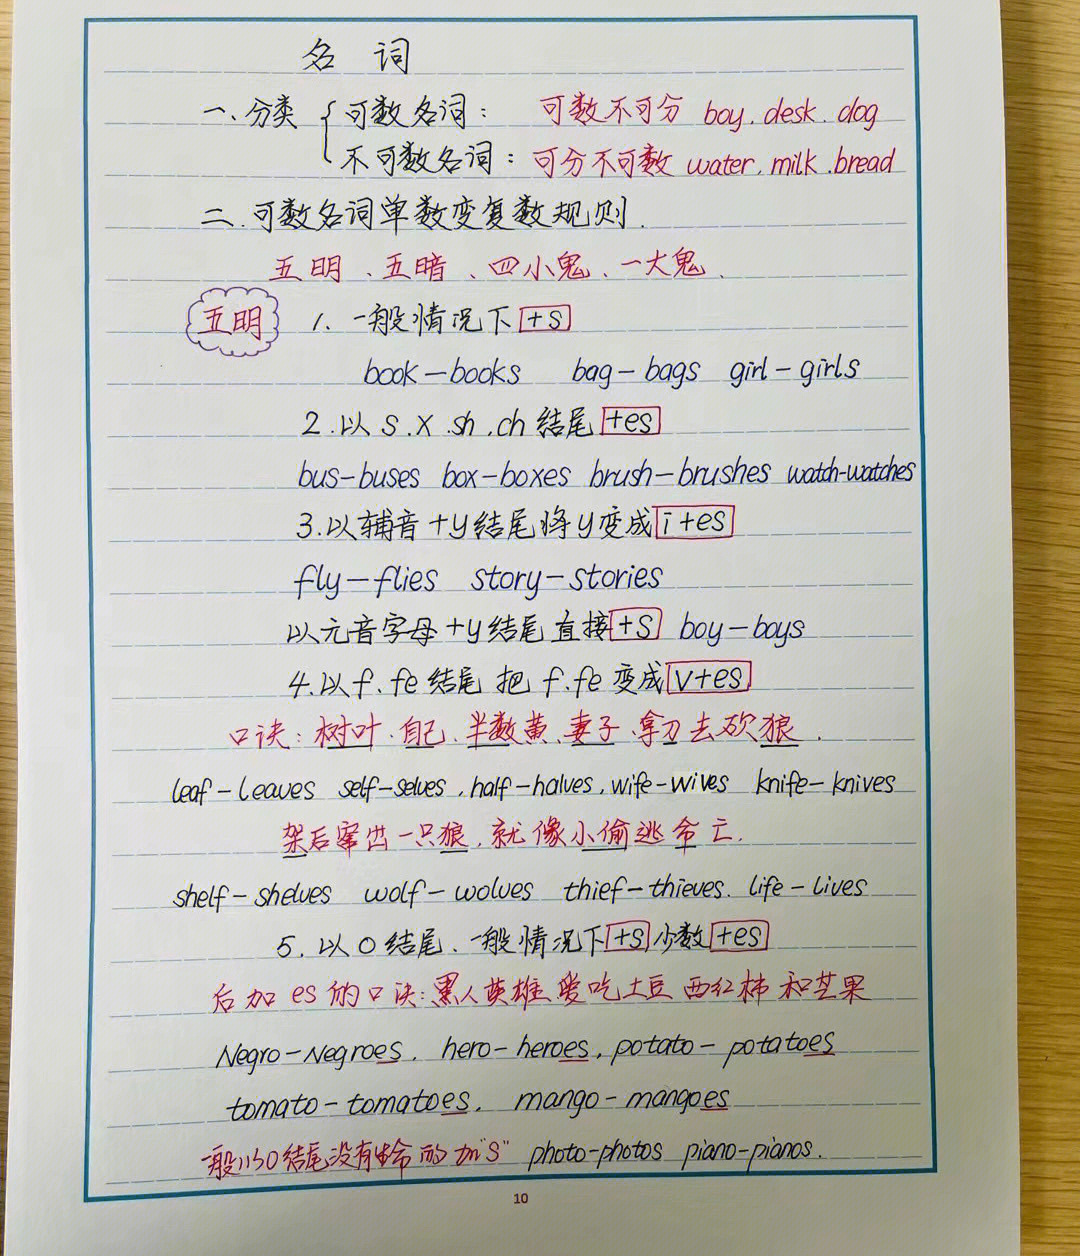 名 词
一、分类 { 可数名词： 可数不可分 boy. desk. dog
不可数名词：可分不可数 water. milk .bread
二.可数名词单数变复数规则.
五明、五暗、四小鬼、一大鬼.
五明 1. 一般情况下 +s
book—books bag—bags girl—girls
2.以 s.x.sh.ch 结尾 +es
bus-buses box-boxes brush-brushes watch-watches
3.以辅音+y结尾将y变成 i+es
fly—flies story—stories
以元音字母+y结尾直接 +s boy—boys
4.以f.fe结尾 把 f.fe 变成 v+es
口诀：树叶.自己.半数黄.妻子、拿刀去砍狼.
leaf-leaves self-selves , half-halves, wife-wives knife-knives
架后窜出一只狼,就像小偷逃命亡.
shelf-shelves wolf-wolves thief-thieves. life-lives
5. 以 o 结尾.一般情况下 +s 少数 +es
后加 es 的口诀:黑人英雄爱吃土豆西红柿和芒果
Negro-Negroes. hero-heroes, potato-potatoes
tomato-tomatoes. mango-mangoes
一般以o结尾没有生命的加"s" photo-photos piano-pianos.
10